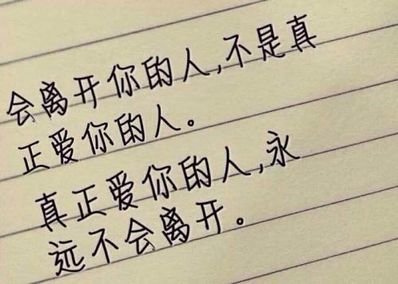 会离开你的人,不是真
正爱你的人。
真正爱你的人,永
远不会离开。